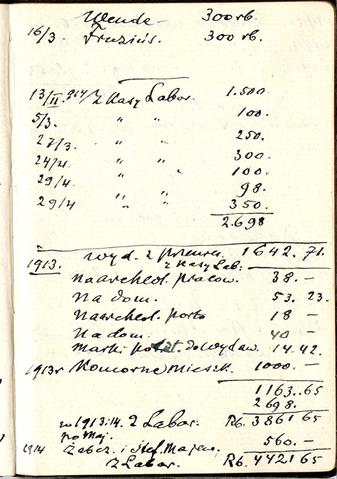 Wende - 300 rb.
16/3. Fruzińs. 300 rb.
13/II. 914 r. z Kasy Labor. 1.500.
5/3. " " 100.
27/3. " " 250.
24/4. " " 300.
29/4 " " 100.
" " 98.
29/4 " " 350.
2.698
1913. Wyd. z 1642.71.
z Kasy Lab:
na archeol. pracow. 38.-
na dom. 53.23.
na archeol. porto 18 -
na dom. 40 -
marki do wydaw. 14.42.
1913 r Komorne mieszk. 1000.-
1163.65
2698.
w 1913:14. z Labor. Rb. 3861 65
po Maj.
1914 Zabez. i Stef. Majew. 560.-
z Labor. Rb. 4421 65